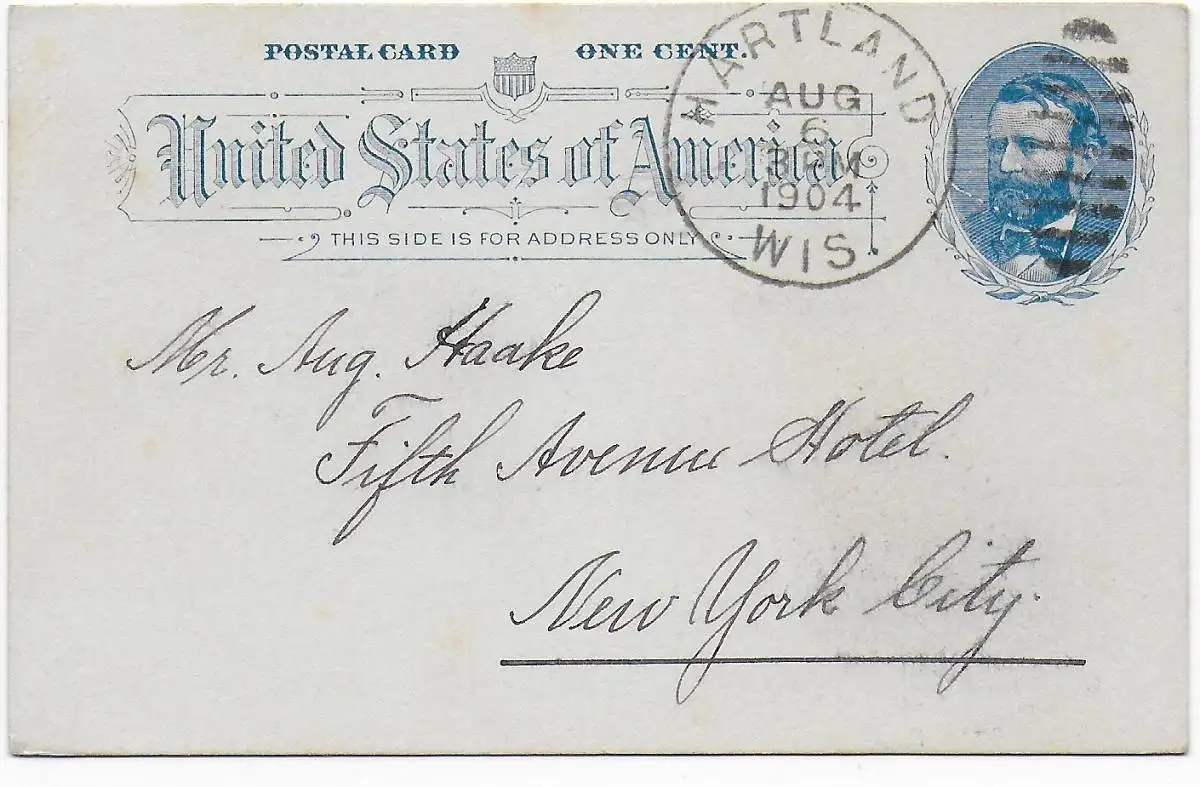 POSTAL CARD ONE CENT.
United States of America
THIS SIDE IS FOR ADDRESS ONLY
HARTLAND
AUG
6
3 PM
1904
WIS
Mr. Aug. Haake
Fifth Avenue Hotel.
New York City.